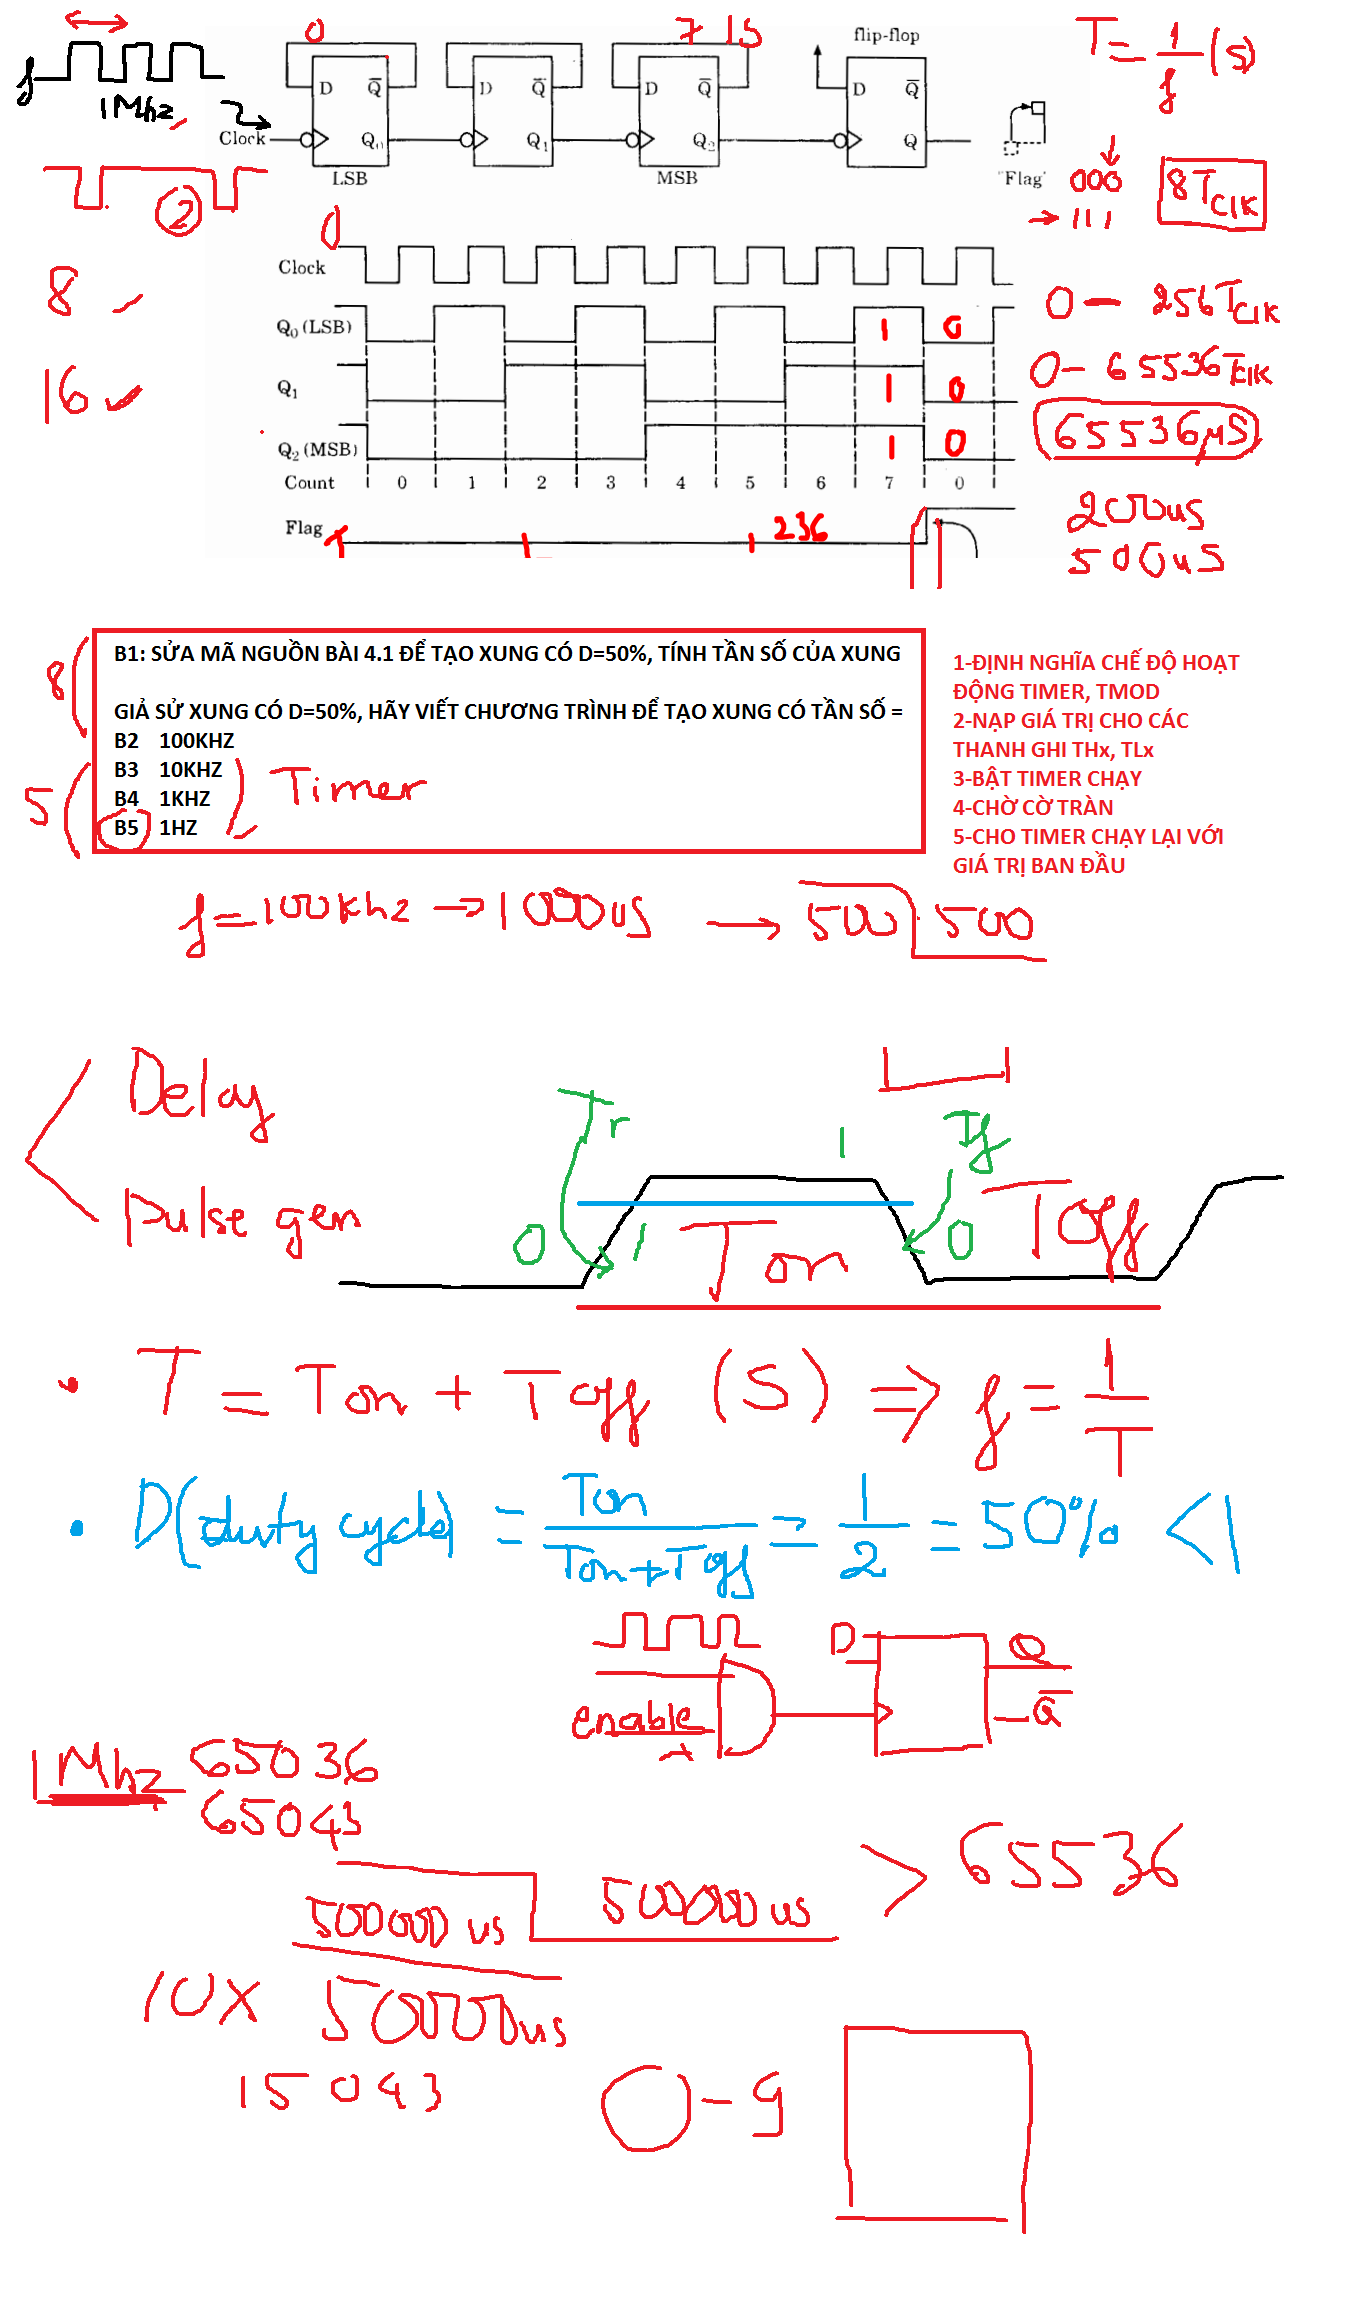 0
7 15
flip-flop
T = 1/f (s)
f
1Mhz
D Q̅ D Q̅ D Q̅ D Q̅
Clock Q₀ Q₁ Q₂ Q
LSB MSB "Flag"
000
111
8T CLK
2
0
Clock
8
0 - 256T CLK
Q₀ (LSB) 1 0
16
Q₁ 1 0
0 - 65536T CLK
65536µS
Q₂ (MSB) 1 0
Count 0 1 2 3 4 5 6 7 0
Flag 236
200us
500uS
8
B1: SỬA MÃ NGUỒN BÀI 4.1 ĐỂ TẠO XUNG CÓ D=50%, TÍNH TẦN SỐ CỦA XUNG
GIẢ SỬ XUNG CÓ D=50%, HÃY VIẾT CHƯƠNG TRÌNH ĐỂ TẠO XUNG CÓ TẦN SỐ =
B2 100KHZ
B3 10KHZ
B4 1KHZ
B5 1HZ
5
Timer
1-ĐỊNH NGHĨA CHẾ ĐỘ HOẠT
ĐỘNG TIMER, TMOD
2-NẠP GIÁ TRỊ CHO CÁC
THANH GHI THx, TLx
3-BẬT TIMER CHẠY
4-CHỜ CỜ TRÀN
5-CHO TIMER CHẠY LẠI VỚI
GIÁ TRỊ BAN ĐẦU
f = 100Khz → 1000us → 500 500
Delay
Pulse gen
Tr 1 Tf
0 1 Ton 0 Toff
T = Ton + Toff (S) ⇒ f = 1/T
D(duty cycle) = Ton/(Ton+Toff) = 1/2 = 50% < 1
D Q
enable Q̅
1Mhz 65036
65043
500000 us 500000 us > 65536
10X 50000us
15043
0 - 9